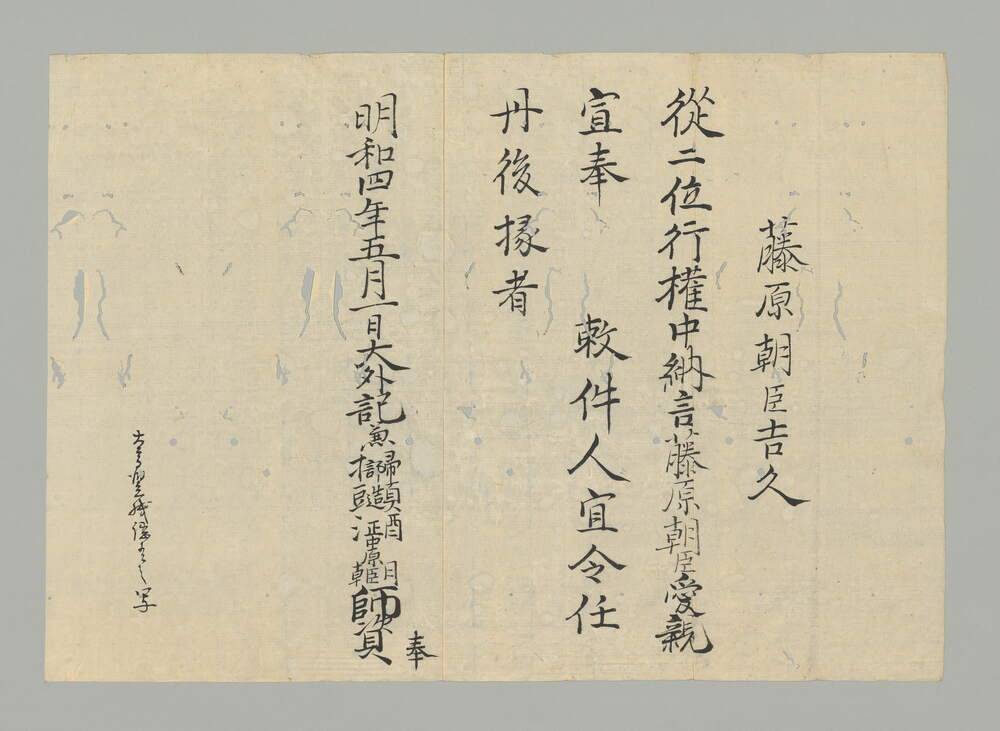 藤原朝臣吉久
從二位行權中納言藤原朝臣愛親
宣奉　　敕件人宜令任
丹後掾者
明和四年五月一日大外記兼掃部頭造酒正中原朝臣師資奉
写